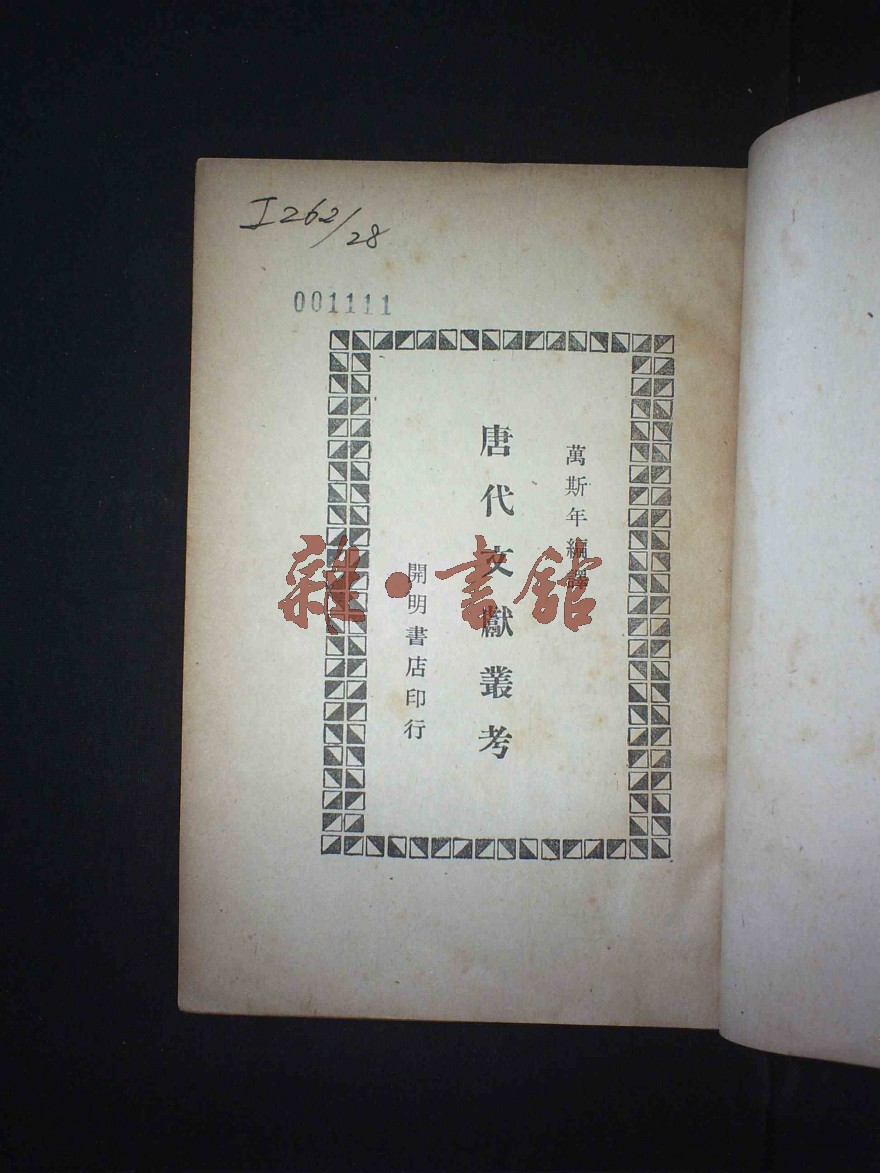 I262/28
001111
萬斯年編譯
唐代文獻叢考
開明書店印行
雜·書館